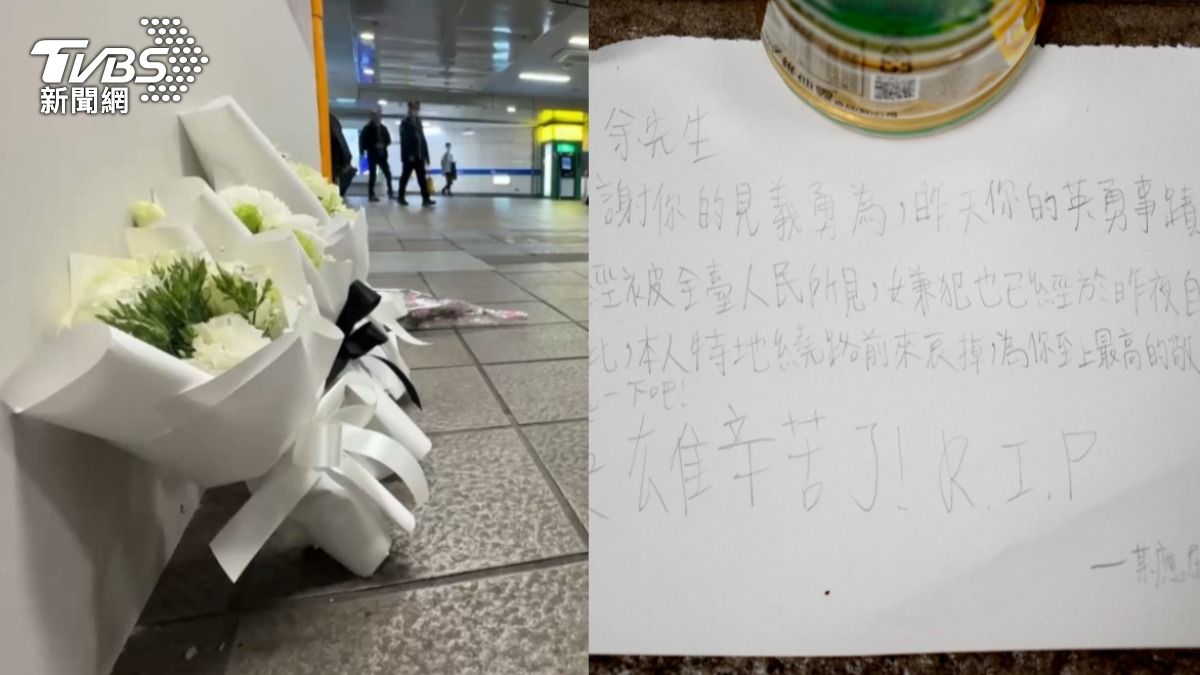 TVBS
新聞網
余先生
謝你的見義勇為，昨天你的英勇事蹟
經被全臺人民所見，嫌犯也已經於昨夜自
比，本人特地繞路前來哀掉，為你至上最高的敬
一下吧！
雄辛苦了！R.I.P
—某應